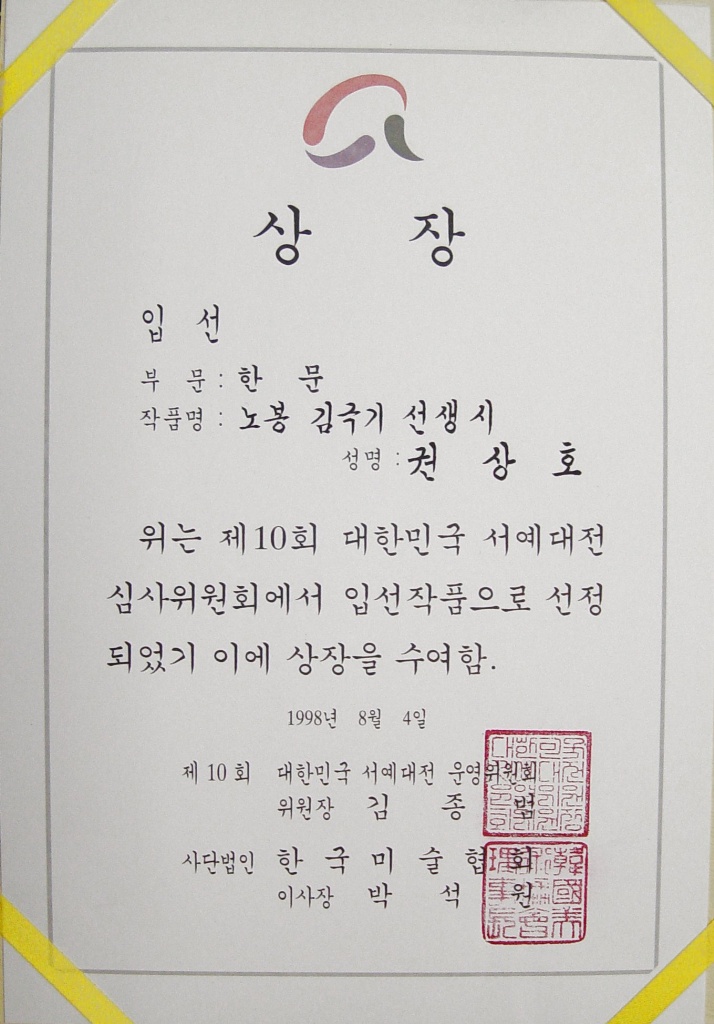 상 장
입 선
부 문 : 한 문
작품명 : 노봉 김극기 선생 시
성명 : 권 상 호
위는 제10회 대한민국 서예대전
심사위원회에서 입선작품으로 선정
되었기 이에 상장을 수여함.
1998년 8월 4일
제 10 회 대한민국 서예대전 운영위원회
위원장 김 종 범
사단법인 한 국 미 술 협 회
이사장 박 석 원